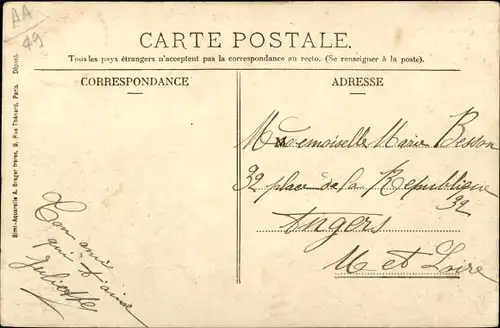 AA
49
CARTE POSTALE.
Tous les pays étrangers n'acceptent pas la correspondance au recto. (Se renseigner à la poste).
CORRESPONDANCE
ADRESSE
Mademoiselle Marie Besson
32 place de la Republique
32
Angers
M et Loire
Ton amie
qui t'aime
Juliette
Simi-Aquarelle A. Breger frères, 9, Rue Thénard, Paris. Déposé.